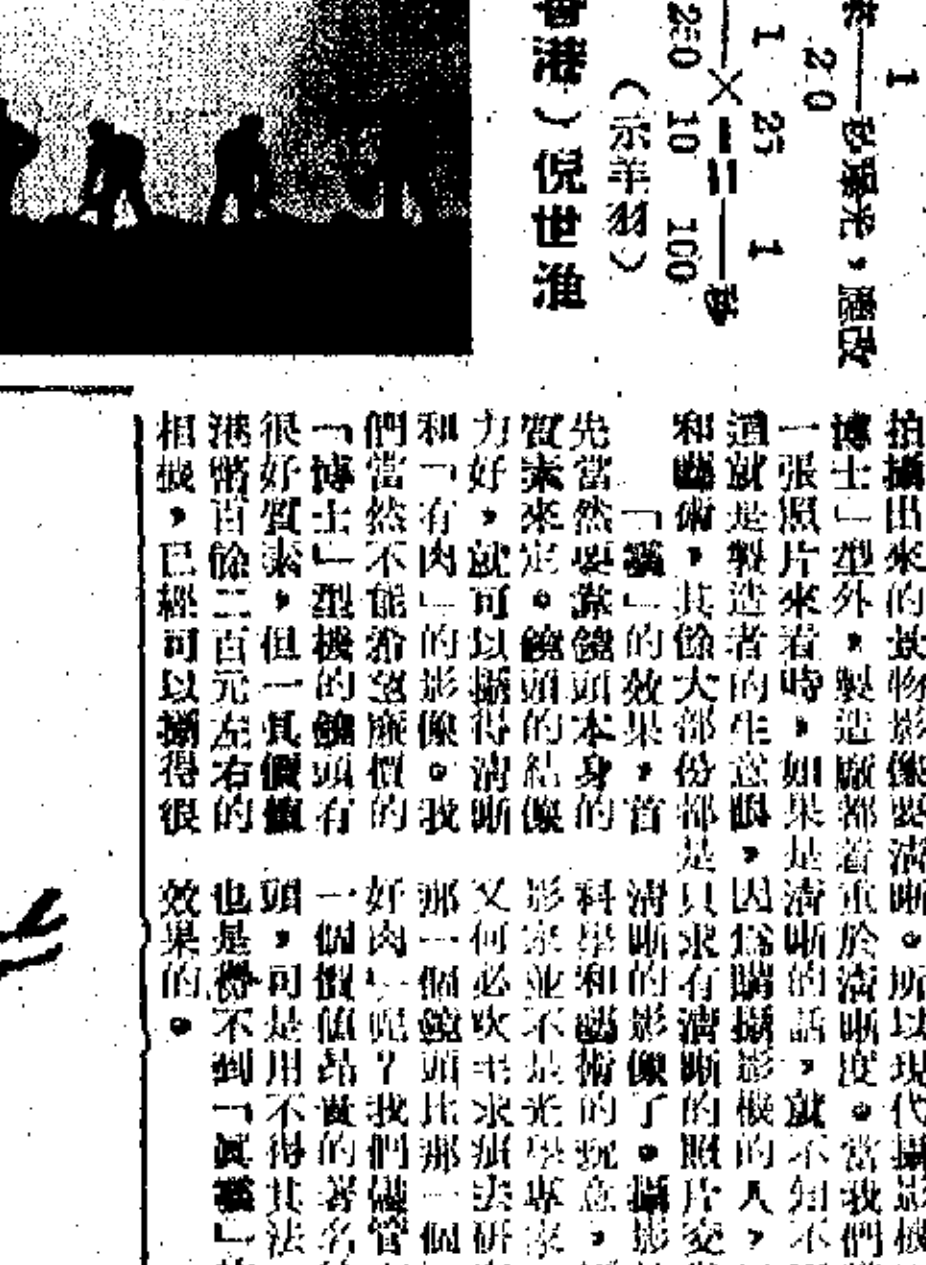 1
20
秒曝光,應改
1 25 1
250 × 10 = 100 秒
(示羊羽)
香港)倪世淮
拍攝出來的景物影像要清晰。所以現代攝影機
博士」型外,製造廠都着重於清晰度。當我們
一張照片來看時,如果是清晰的話,就不知不
道就是製造者的生意眼,因爲購攝影機的人,
和藝術,其餘大部份都是只求有清晰的照片交
「」的效果,首
先當然要靠鏡頭本身的
質素來定。鏡頭的結像
力好,就可以攝得清晰
和「有肉」的影像。我
們當然不能希望廉價的
「博士」型機的鏡頭有
很好質素,但一具價值
港幣百餘二百元左右的
相機,已經可以攝得很
清晰的影像了。攝影
科學和藝術的玩意,
影家並不是光學專家
又何必吹毛求疵去研
那一個鏡頭比那一個
好肉」呢?我們儘管
一個價值昂貴的著名
頭,可是用不得其法
也是得不到「眞」
效果的。